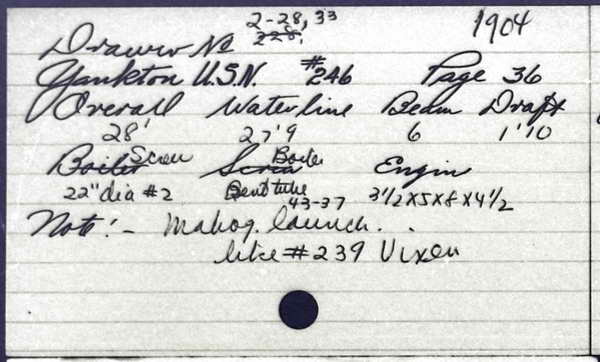 2-28, 33 1904
Drawer No 228.
Yankton U.S.N. #246 Page 36
Overall Waterline Beam Draft
28' 27'9 6 1'10
Boiler Screw Screw Boiler Engin
22" dia #2 Bent tube 3 1/2 x 5 x 8 x 4 1/2
43-37
Note! - Mahog. launch.
like #239 Vixen